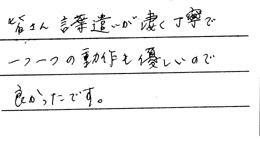 皆さん言葉遣いが凄く丁寧で
一つ一つの動作も優しいので
良かったです。